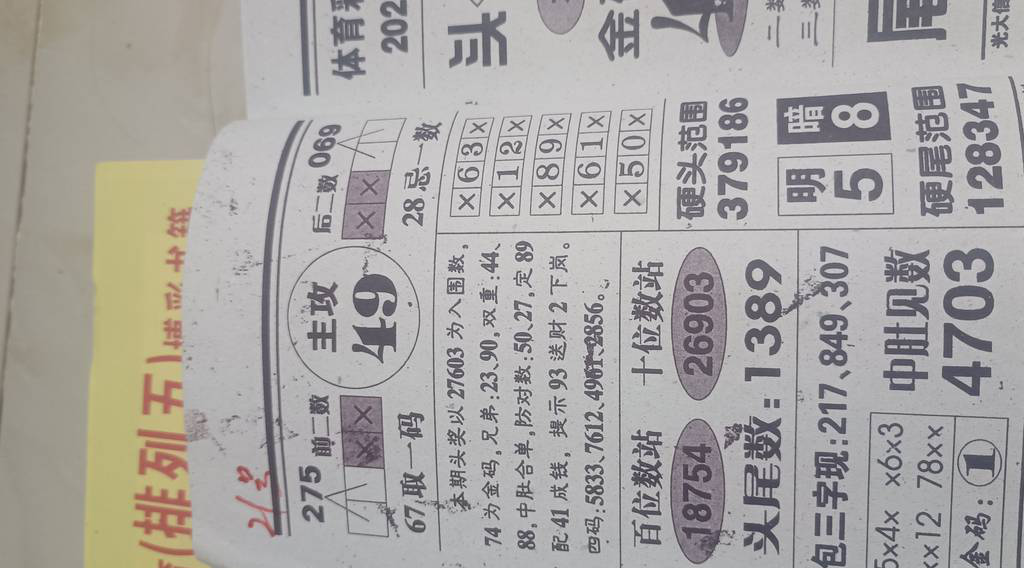 21号
275 前二数
主攻
49
后二数 069
67取一码
28忌一数
本期头奖以27603为入围数,
74为金码,兄弟:23、90,双重:44、
88,中肚合单,防对数:50、27,定89
配41成钱,提示93送财2下岚。
四码:5833、7612、4967、2856。
×63×
×12×
×89×
×61×
×50×
百位数站
18754
十位数站
26903
头尾数:1389
硬头范围
379186
明
5
暗
8
包三字现:217、849、307
中肚见数
4703
硬尾范围
128347
5×4× ×6×3
××12 78××
金码:①
体育彩
202
头
金
尾
二
三
光大信
(排列五)博彩书籍